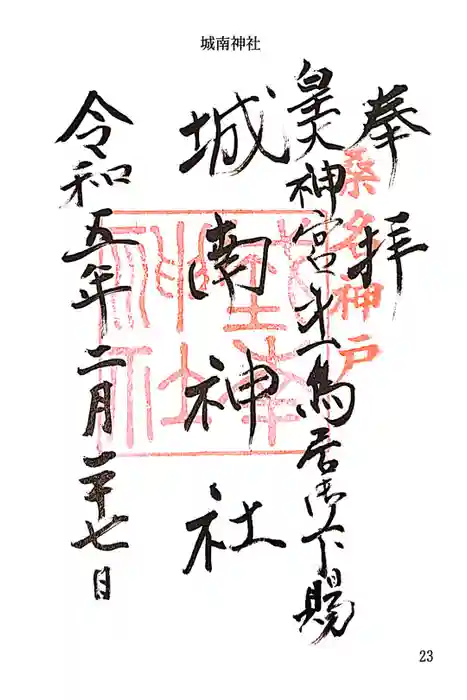 城南神社
奉拝
桑名神戸
皇大神宮第一鳥居御下賜
城南神社
令和五年二月二十七日
23